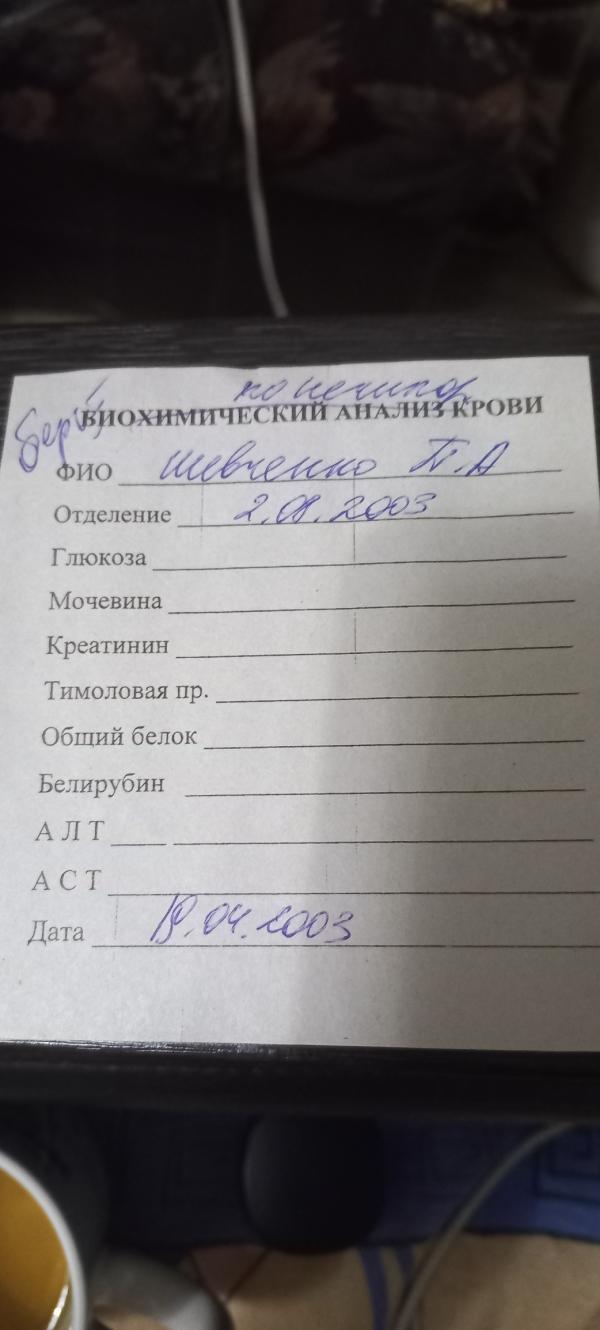 БИОХИМИЧЕСКИЙ АНАЛИЗ КРОВИ
ФИО Шевченко П.А
Отделение 2.08.2003
Глюкоза
Мочевина
Креатинин
Тимоловая пр.
Общий белок
Белирубин
А Л Т
А С Т
Дата .04.2003